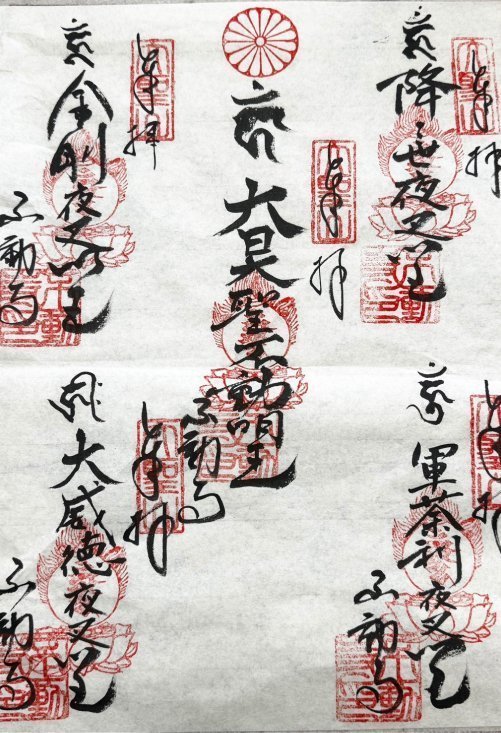 奉拝
降三世夜叉明王
奉拝
大日大聖不動明王
不動寺
奉拝
金剛夜叉明王
不動寺
奉拝
軍荼利夜叉明王
不動寺
奉拝
大威徳夜叉明王
不動寺